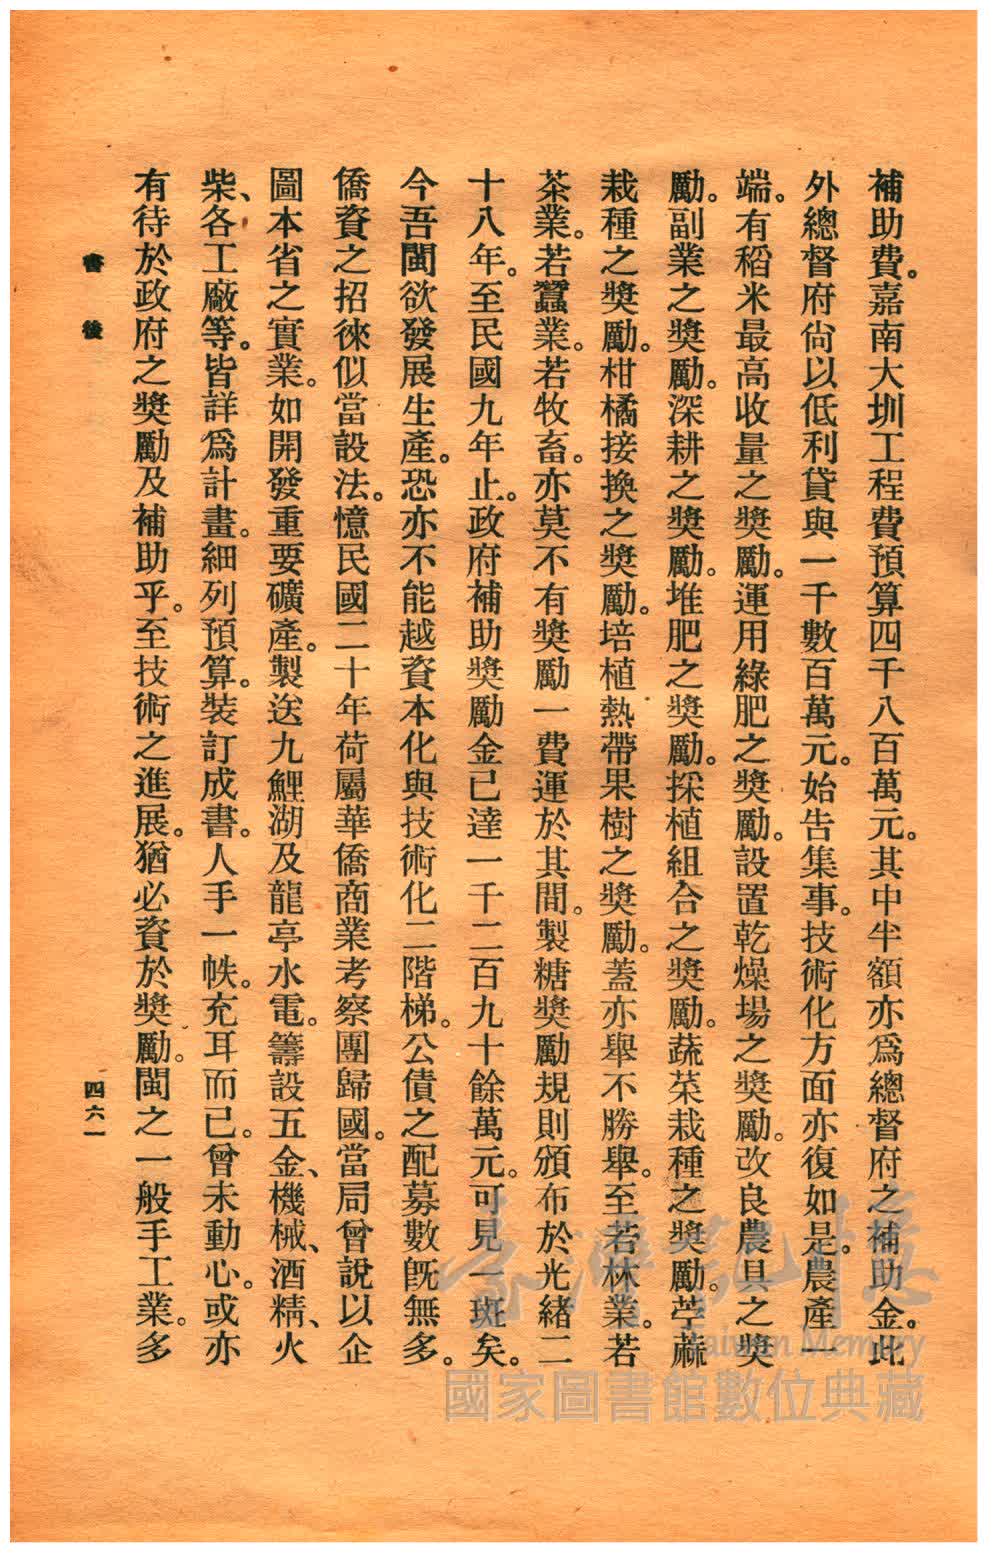 補助費。嘉南大圳工程費預算四千八百萬元。其中半額亦爲總督府之補助金。此
外總督府尙以低利貸與一千數百萬元。始告集事。技術化方面亦復如是。農產一
端。有稻米最高收量之奬勵。運用綠肥之奬勵。設置乾燥場之奬勵。改良農具之奬
勵。副業之奬勵。深耕之奬勵。堆肥之奬勵。採植組合之奬勵。蔬菜栽種之奬勵。苧蔴
栽種之奬勵。柑橘接換之奬勵。培植熱帶果樹之奬勵。蓋亦舉不勝舉。至若林業。若
茶業。若蠶業。若牧畜。亦莫不有奬勵一費運於其間。製糖奬勵規則頒布於光緒二
十八年。至民國九年止。政府補助奬勵金已達一千二百九十餘萬元。可見一斑矣。
今吾閩欲發展生產。恐亦不能越資本化與技術化二階梯。公債之配募數旣無多。
僑資之招徠似當設法。憶民國二十年荷屬華僑商業考察團歸國。當局曾說以企
圖本省之實業。如開發重要礦產。製送九鯉湖及龍亭水電。籌設五金、機械、酒精、火
柴、各工廠等。皆詳爲計畫。細列預算。裝訂成書。人手一帙。充耳而已。曾未動心。或亦
有待於政府之奬勵及補助乎。至技術之進展。猶必資於奬勵。閩之一般手工業。多
書後
四六一
臺灣記憶
Taiwan Memory
國家圖書館數位典藏